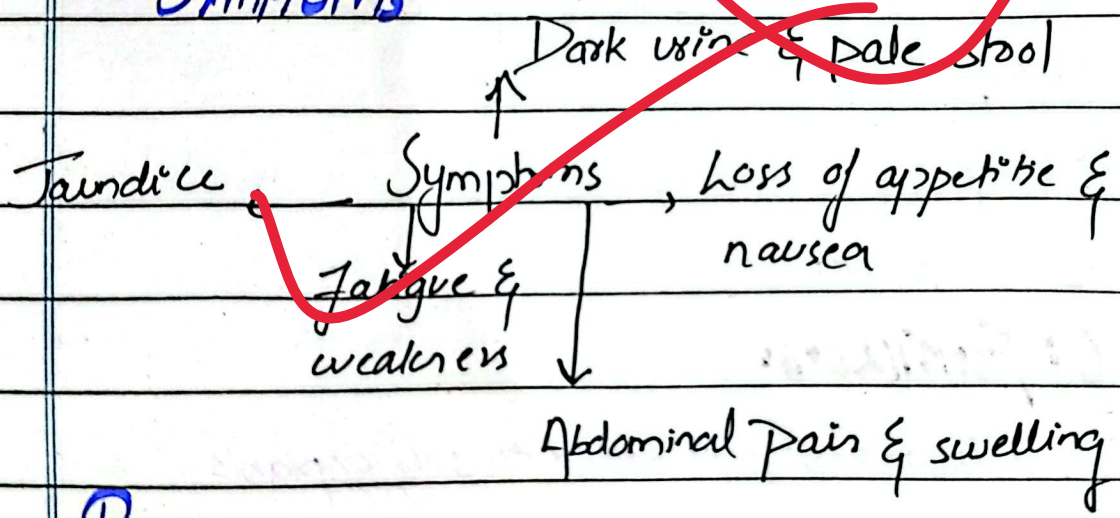 Symptoms
Dark urine & pale stool
Jaundice Symptoms Loss of appetitie &
nausea
Fatigue &
weakness
Abdominal Pain & swelling